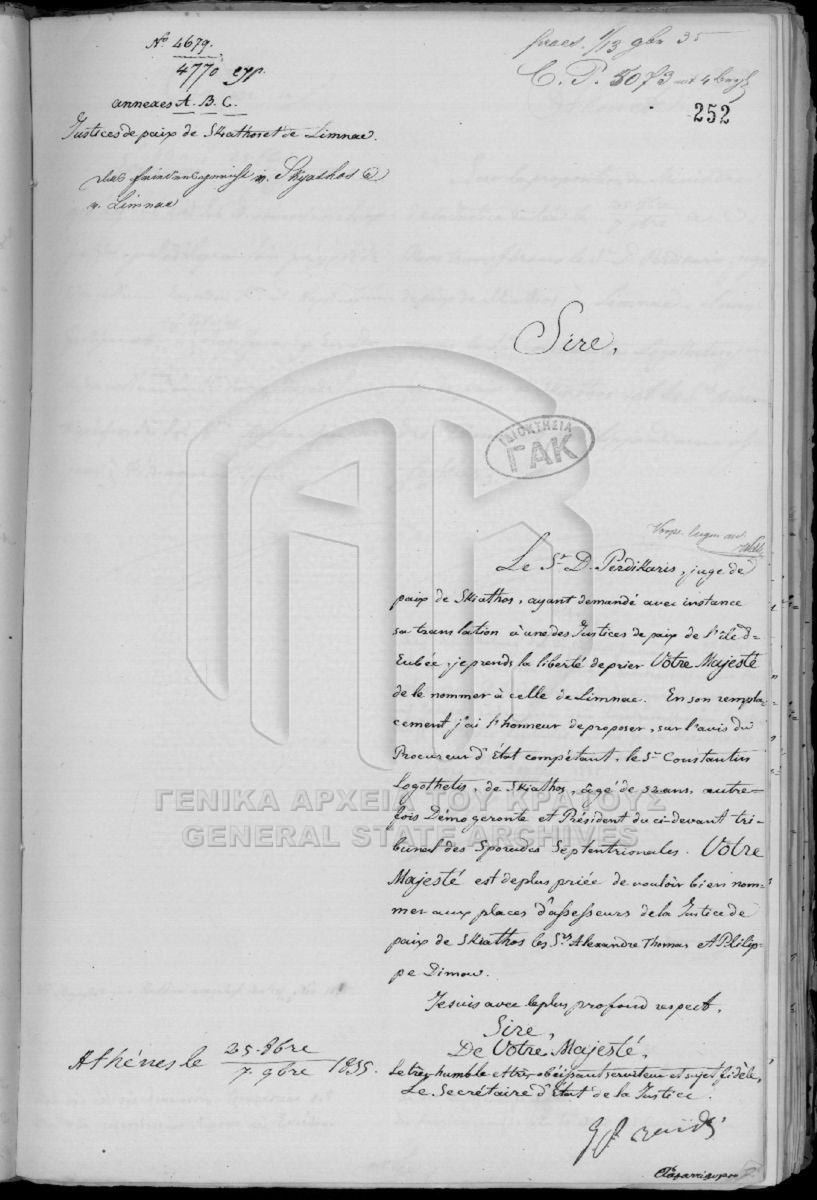 No 4679.
4770 exp.
annexes A. B. C.
Justices de paix de Skiathos et de Limnae.
v. Skyathos &
v. Limnae
praes. 1/13 9br 35
C. P. 5073
252
Sire,
ΙΔΙΟΚΤΗΣΙΑ
ΓΑΚ
Le Sr. D. Perdikaris, juge de
paix de Skiathos, ayant demandé avec instance
sa translation à une des Justices de paix de l'île d'
Eubée, je prends la liberté de prier Votre Majesté
de le nommer à celle de Limnae. En son rempla-
cement j'ai l'honneur de proposer, sur l'avis du
Procureur d'État compétant, le Sr. Constantin
Logothetis, de Skiathos, âgé de 52 ans, autre-
fois Démogeronte et Président du ci-devant tri-
bunal des Sporades Septentrionales. Votre
Majesté est de plus priée de vouloir bien nom-
mer aux places d'assesseurs de la Justice de
paix de Skiathos les Srs. Alexandre Thomas et A Philip-
pe Dimou.
Je suis avec le plus profond respect,
Sire,
De Votre Majesté,
Le très humble et très obéissant serviteur et sujet fidèle,
Le Secrétaire d'État de la Justice.
Athènes le 25. 8bre / 7. 9bre 1835.
ΓΕΝΙΚΑ ΑΡΧΕΙΑ ΤΟΥ ΚΡΑΤΟΥΣ
GENERAL STATE ARCHIVES